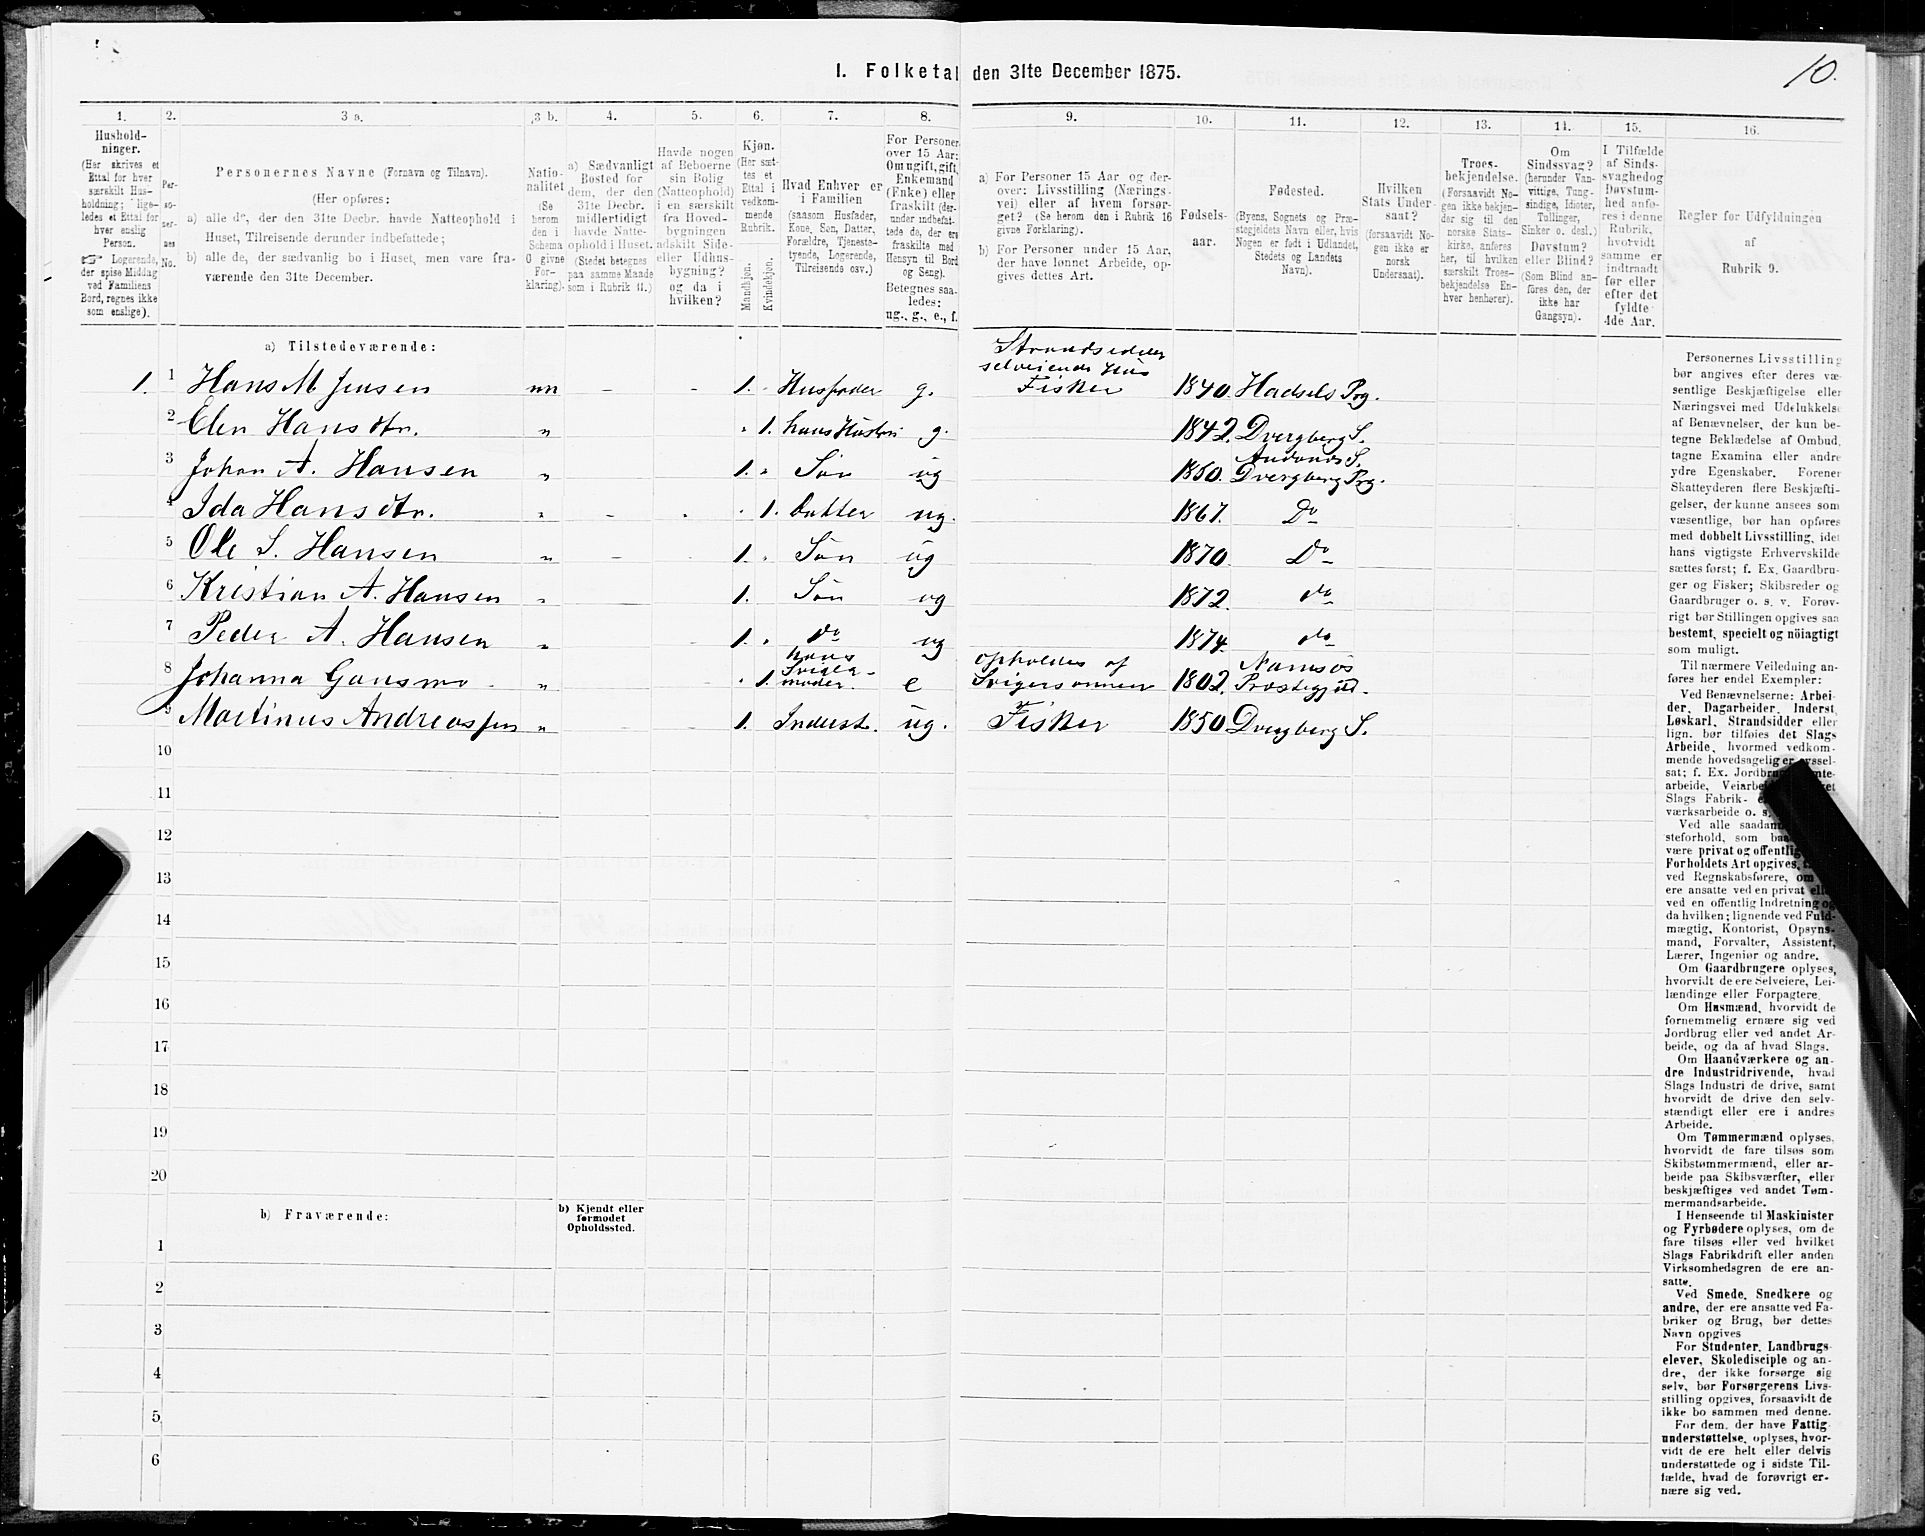 10.
1. Folketal den 31te December 1875.
1. 2. 3 a. 3 b. 4. 5. 6. 7. 8. 9. 10. 11. 12. 13. 14. 15. 16.
Hushold-
ninger.
(Her skrives et
Ettal for hver
særskilt Hus-
holdning; lige-
ledes et Ettal for
hver enslig
Person.
☞ Logerende,
der spise Middag
ved Familiens
Bord, regnes ikke
som enslige).
Per-
so-
ner-
nes
No.
Personernes Navne (Fornavn og Tilnavn).
(Her opføres:
a) alle de, der den 31te Decbr. havde Natteophold i
Huset, Tilreisende derunder indbefattede;
b) alle de, der sædvanlig bo i Huset, men vare fra-
værende den 31te December.
Natio-
nalitet
(Se
herom
den i
Schema
O givne
For-
klaring).
a) Sædvanligt
Bosted for
dem, der den
31te Decbr.
midlertidigt
havde Natte-
ophold i Huset.
(Stedet betegnes
paa samme Maade
som i Rubrik 11.)
Havde nogen
af Beboerne
sin Bolig
(Natteophold)
i en særskilt
fra Hoved-
bygningen
adskilt Side-
eller Udhus-
bygning?
og da i
hvilken?
Kjøn.
(Her sæt-
tes et
Ettal i
vedkom-
mende
Rubrik.
Mandkjøn.
Kvindekjøn.
Hvad Enhver er
i Familien
(saasom Husfader,
Kone, Søn, Datter,
Forældre, Tjeneste-
tyende, Logerende,
Tilreisende osv.)
For Personer
over 15 Aar:
Om ugift, gift,
Enkemand
(Enke) eller
fraskilt (der-
under indbefat-
tede de, der ere
fraskilte med
Hensyn til Bord
og Seng).
Betegnes saa-
ledes:
ug., g., e., f.
a) For Personer 15 Aar og der-
over: Livsstilling (Nærings-
vei) eller af hvem forsør-
get? (Se herom den i Rubrik 16
givne Forklaring).
b) For Personer under 15 Aar,
der have lønnet Arbeide, op-
gives dettes Art.
Fødsels-
aar.
Fødested.
(Byens, Sognets og Præ-
stegjeldets Navn eller, hvis
Nogen er født i Udlandet,
Stedets og Landets
Navn).
Hvilken
Stats Under-
saat?
(forsaavidt No-
gen ikke er
norsk
Undersaat).
Troes-
bekjendelse.
(Forsaavidt No-
gen ikke bekjen-
der sig til den
norske Stats-
kirke, anføres
her, til hvilken
særskilt Troes-
bekjendelse En-
hver henhører).
Om
Sindssvag?
(herunder Van-
vittige, Tung-
sindige, Idioter,
Tullinger,
Sinker o. desl.)
Døvstum?
eller Blind?
(Som Blind an-
føres den, der
ikke har
Gangsyn).
I Tilfælde
af Sinds-
svaghed og
Døvstum-
hed anfø-
res i denne
Rubrik,
hvorvidt
samme er
indtraadt
før eller
efter det
fyldte
4de Aar.
Regler for Udfyldningen
af
Rubrik 9.
a) Tilstedeværende:
Strandsidder
selveiende Hus
1. 1 Hans M Jensen nn - - 1. - Husfader g. Fisker 1840. Hadsels Prg.
2 Elen Hansdtr. „ „ 1. hans Hustru g. 1842. Dvergberg S.
Andenæs S.
3 Johan A. Hansen „ 1. „ Søn ug 1860. Dvergberg Prg.
4 Ida Hansdtr. „ - - 1. Datter ug. 1867. Do
5 Ole S. Hansen „ - - 1. „ Søn ug 1870. Do
6 Kristian A. Hansen „ 1. Søn ug 1872. do
7 Peder A. Hansen „ 1. „ do ug 1874. do
hans opholdes af Namsös
8 Johanna Gansmo - „ 1. Svigermoder. e Svigersønnen 1802. Præstegjæld.
9 Martinus Andreassen „ 1. Inderst. ug. Fisker 1850 Dvergberg S.
10
11
12
13
14
15
16
17
18
19
20
b) Fraværende:
b) Kjendt eller
formodet
Opholdssted.
1
2
3
4
5
6
Personernes Livsstilling
bør angives efter deres væ-
sentlige Beskjæftigelse eller
Næringsvei med Udelukkelse
af Benævnelser, der kun be-
tegne Beklædelse af Ombud,
tagne Examina eller andre
ydre Egenskaber. Forener
Skatteyderen flere Beskjæfti-
gelser, der kunne ansees som
væsentlige, bør han opføres
med dobbelt Livsstilling, idet
hans vigtigste Erhvervskilde
sættes først; f. Ex. Gaardbru-
ger og Fisker; Skibsreder og
Gaardbruger o. s. v. Forøv-
rigt bør Stillingen opgives saa
bestemt, specielt og nöiagtigt
som muligt.
Til nærmere Veiledning an-
føres her endel Exempler:
Ved Benævnelserne: Arbei-
der, Dagarbeider, Inderst,
Løskarl, Strandsidder eller
lign. bør tilføies det Slags
Arbeide, hvormed vedkom-
mende hovedsagelig er syssel-
sat; f. Ex. Jordbrug
arbeide, Veiarbeide
Slags Fabrik-
værksarbeide o. s.
Ved alle saadanne
steforhold, som
være privat og offentlig
Forholdets Art opgives,
ved Regnskabsførere, om
ere ansatte ved en privat eller
ved en offentlig Indretning og
da hvilken; lignende ved Fuld-
mægtig, Kontorist, Opsyns-
mand, Forvalter, Assistent,
Lærer, Ingeniør og andre.
Om Gaardbrugere oplyses,
hvorvidt de ere Selveiere, Lei-
lændinge eller Forpagtere.
Om Husmænd, hvorvidt de
fornemmelig ernære sig ved
Jordbrug eller ved andet Ar-
beide, og da af hvad Slags.
Om Haandværkere og an-
dre Industridrivende, hvad
Slags Industri de drive, samt
hvorvidt de drive den selv-
stændigt eller ere i andres
Arbeide.
Om Tømmermænd oplyses,
hvorvidt de fare tilsøs som
Skibstømmermænd, eller ar-
beide paa Skibsværfter, eller
beskjæftiges ved andet Tøm-
mermandsarbeide.
I Henseende til Maskinister
og Fyrbødere oplyses, om de
fare tilsøs eller ved hvilket
Slags Fabrikdrift eller anden
Virksomhedsgren de ere an-
satte.
Ved Smede, Snedkere og
andre, der ere ansatte ved Fa-
briker og Brug, bør dettes
Navn opgives
For Studenter, Landbrugs-
elever, Skoledisciple og an-
dre, der ikke forsørge sig
selv, bør Forsørgerens Livs-
stilling opgives, forsaavidt de
ikke bo sammen med denne.
For dem, der have Fattig-
understøttelse, oplyses, hvor-
vidt de ere helt eller delvis
understøttede og i sidste Til-
fælde, hvad de forøvrigt er-
nære sig ved.